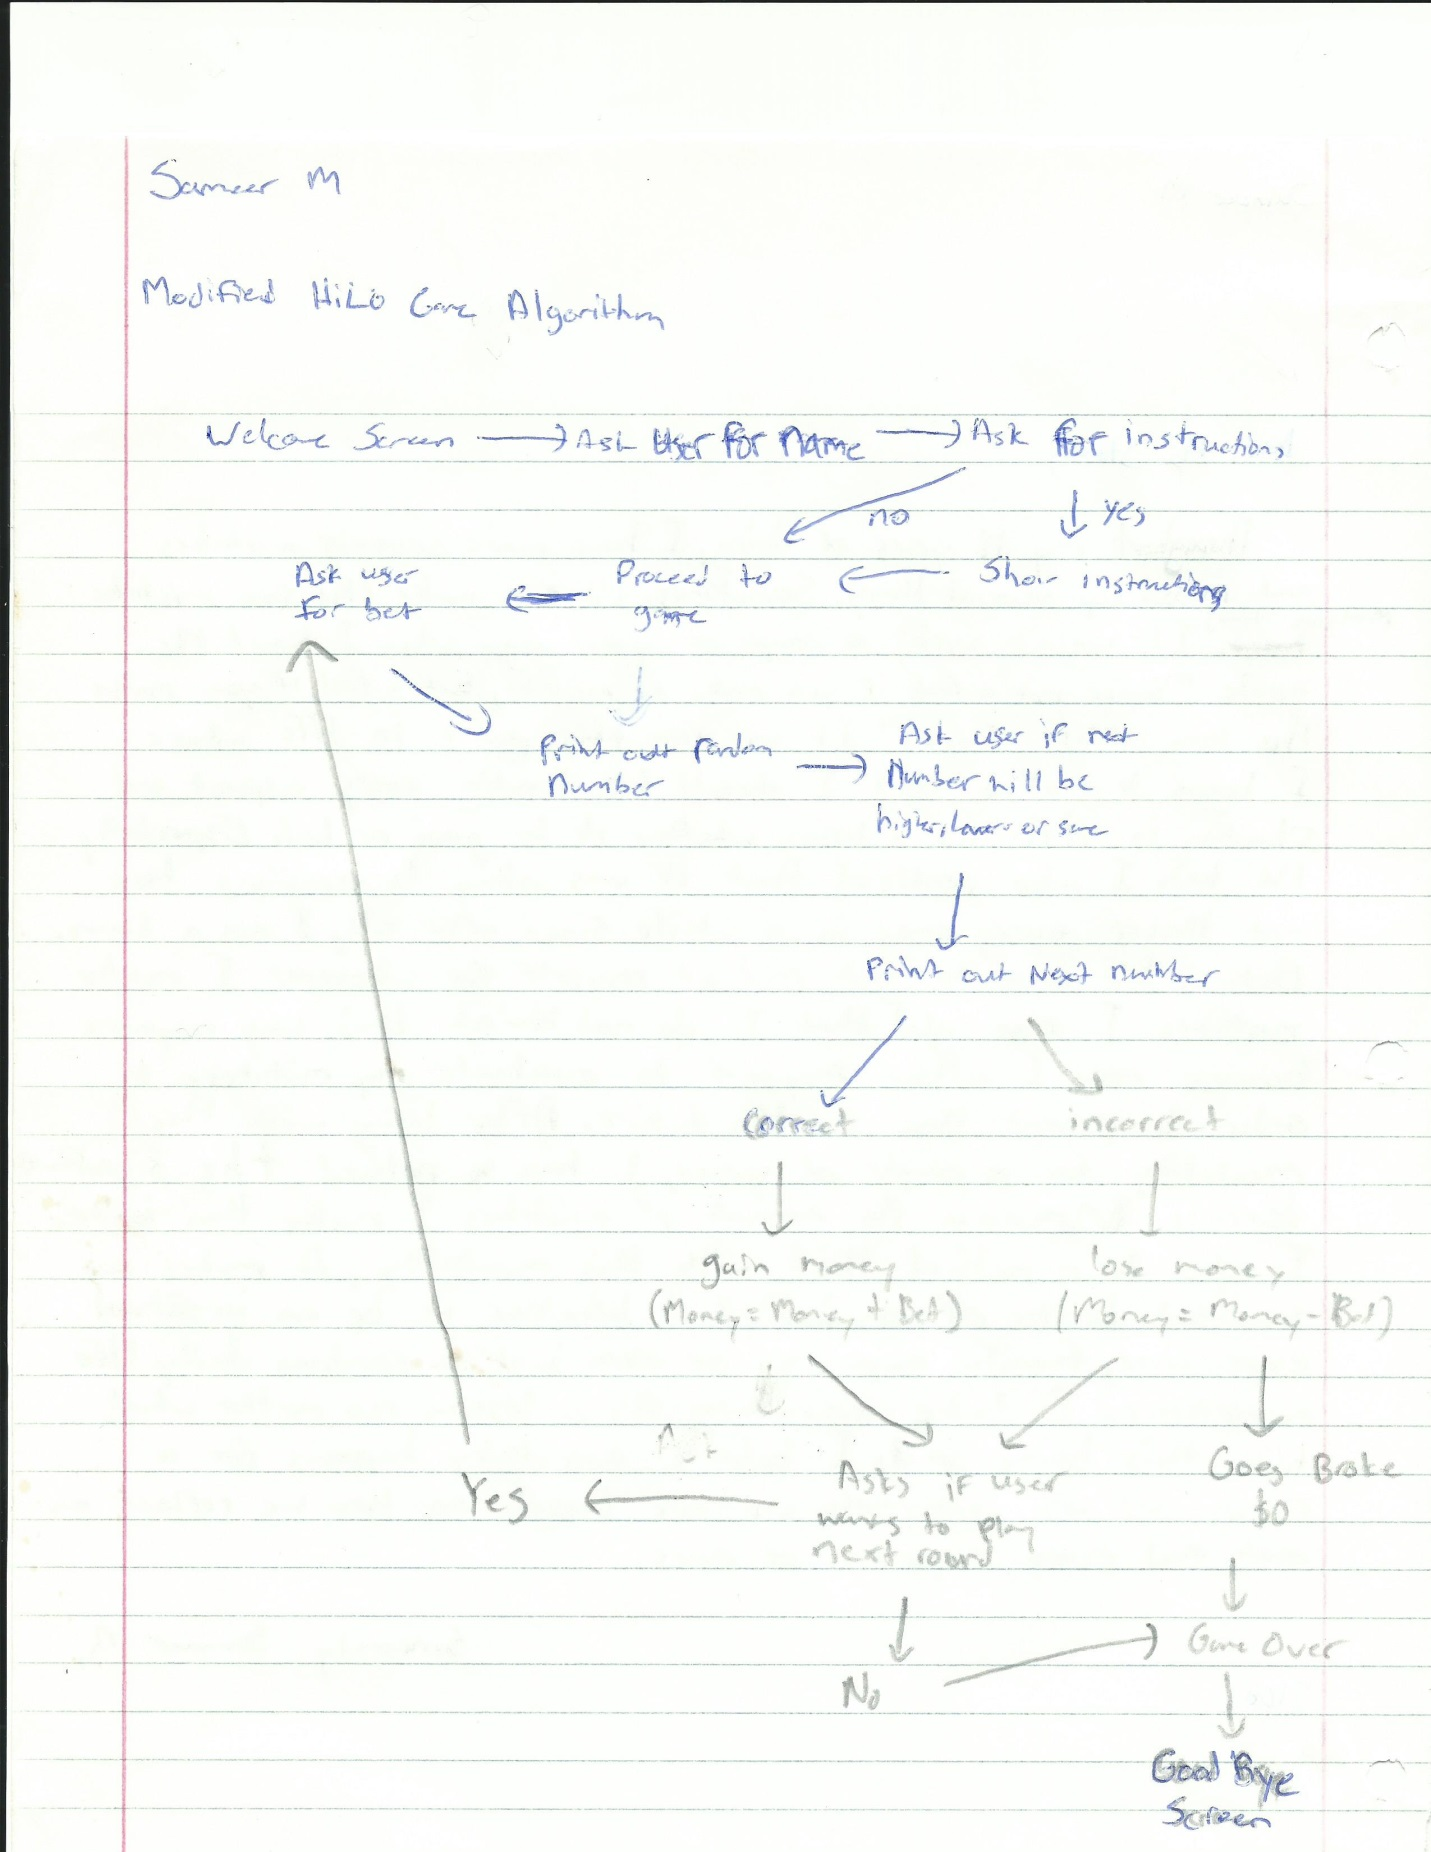 Sameer M
Modified HiLo Game Algorithm
Welcome Screen → Ask User For Name → Ask For instructions
no
yes
Ask user
for bet
Proceed to
game
Show instructions
Print out random
Number
Ask user if next
Number will be
higher, lower or same
Print out Next number
Correct
incorrect
gain money
(Money = Money + Bet)
lose money
(Money = Money - Bet)
Yes
Asks if user
wants to play
next round
Goes Broke
$0
No
Game Over
Good Bye
Screen